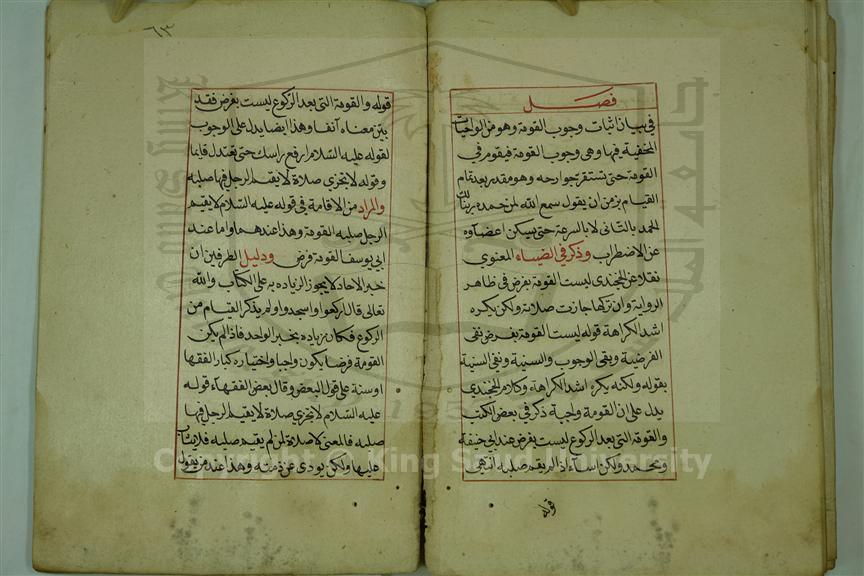 فصل
في بيان اثبات وجوب القومة وهو من الواجبات
المخفية فيها وهي وجوب القومة فيقوم في
القومة حتى يستقر بجوارحه وهو مقدر بعد تمام
القيام بزمن ان يقول سمع الله لمن حمده ربنا لك
الحمد بالتاني لا بالسرعة حتى يسكن اعضاوه
عن الاضطراب وذكر في الضياء المعنوي
نقلا عن الخجندي ليست القومة بفرض في ظاهر
الرواية وان تركها جازت صلاته ولكن يكره
اشد الكراهة قوله ليست القومة بفرض نفى
الفرضية وبقى الوجوب والسنية ونفى السنية
بقوله ولكنه يكره اشد الكراهة وكلام الخجندي
يدل على ان القومة واجبة ذكر في بعض الكتب
والقومة التي بعد الركوع ليست بفرض عند ابي حنيفة
ومحمد ولكن اساء اذا لم يقم صلبه انتهى
قوله
٦٣
قوله والقومة التي بعد الركوع ليست بفرض فقد
بين معناه آنفا وهذا ايضا يدل على الوجوب
لقوله عليه السلام ارفع راسك حتى تعتدل قايما
وقوله لا تجزي صلاة لا يقيم الرجل فيها صلبه
والمراد من الاقامة في قوله عليه السلام لا يقيم
الرجل صلبه القومة وهذا عندهما واما عند
ابي يوسف القومة فرض ودليل الطرفين ان
خبر الاحاد لا يجوز الزيادة به على الكتاب والله
تعالى قال اركعوا واسجدوا ولم يذكر القيام من
الركوع فكان زيادة بخبر الواحد فاذا لم يكن
القومة فرضا يكون واجبا واختياره كبار الفقها
او سنة على قول البعض وقال بعض الفقهاء قوله
عليه السلام لا تجزي صلاة لا يقيم الرجل فيها
صلبه فالمعنى لا صلاة لمن لم يقيم صلبه فلا يثاب
عليها ولكن يودى عن ذمته وهذا عند من يقول
Copyright © King Saud University